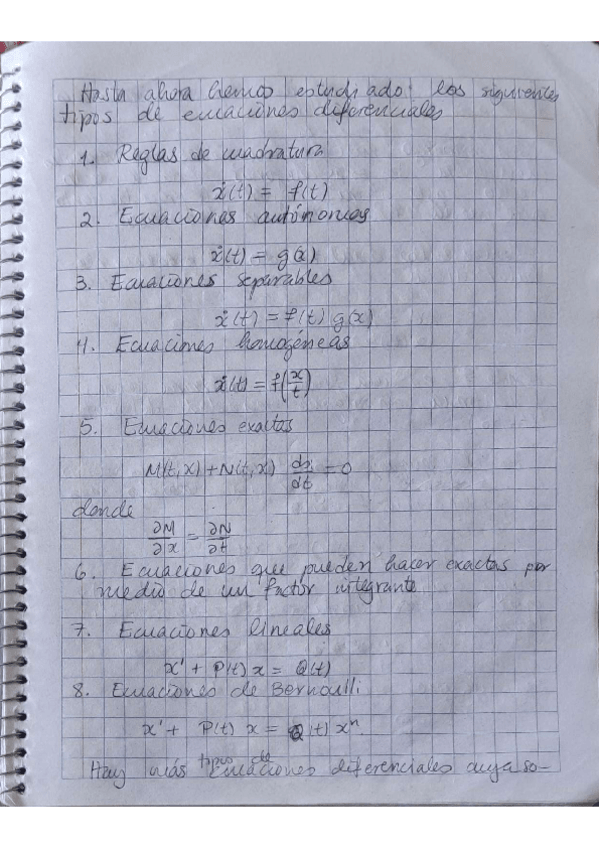 Hasta ahora hemos estudiado los siguientes
tipos de ecuaciones diferenciales
1. Reglas de cuadratura
ẋ(t) = f(t)
2. Ecuaciones autónomas
ẋ(t) = g(x)
3. Ecuaciones separables
ẋ(t) = f(t) g(x)
4. Ecuaciones homogéneas
ẋ(t) = f(x/t)
5. Ecuaciones exactas
M(t,x) + N(t,x) dx/dt = 0
donde
∂M/∂x = ∂N/∂t
6. Ecuaciones que pueden hacer exactas por
medio de un factor integrante
7. Ecuaciones lineales
x' + P(t) x = Q(t)
8. Ecuaciones de Bernoulli
x' + P(t) x = Q(t) xⁿ.
Hay más tipos de ecuaciones diferenciales cuya so-